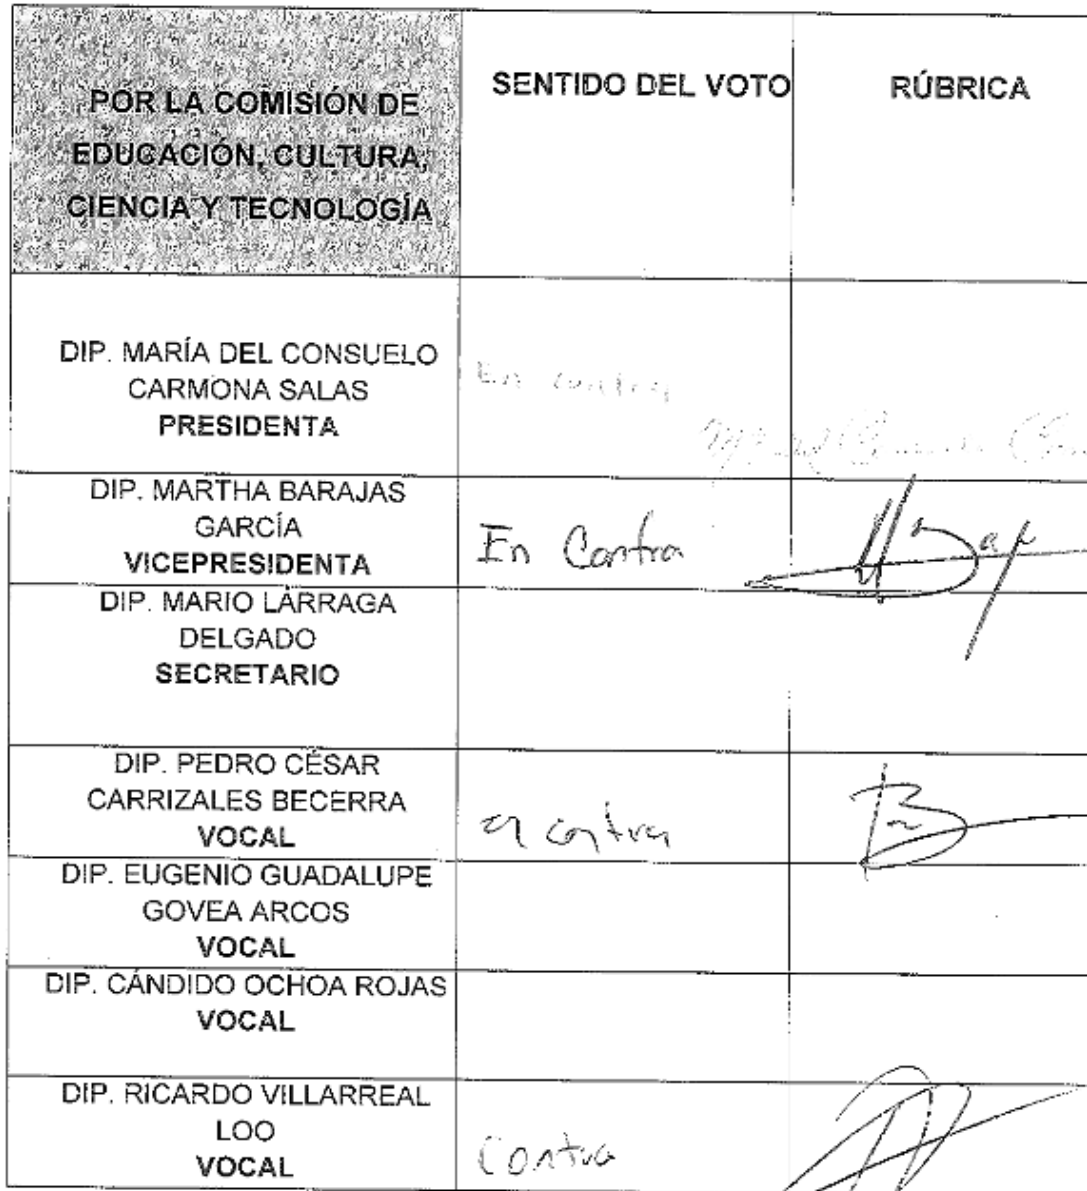 POR LA COMISIÓN DE
EDUCACIÓN, CULTURA,
CIENCIA Y TECNOLOGÍA
SENTIDO DEL VOTO
RÚBRICA
DIP. MARÍA DEL CONSUELO
CARMONA SALAS
PRESIDENTA
En contra
DIP. MARTHA BARAJAS
GARCÍA
VICEPRESIDENTA
En Contra
DIP. MARIO LÁRRAGA
DELGADO
SECRETARIO
DIP. PEDRO CÉSAR
CARRIZALES BECERRA
VOCAL
en contra
DIP. EUGENIO GUADALUPE
GOVEA ARCOS
VOCAL
DIP. CÁNDIDO OCHOA ROJAS
VOCAL
DIP. RICARDO VILLARREAL
LOO
VOCAL
Contra